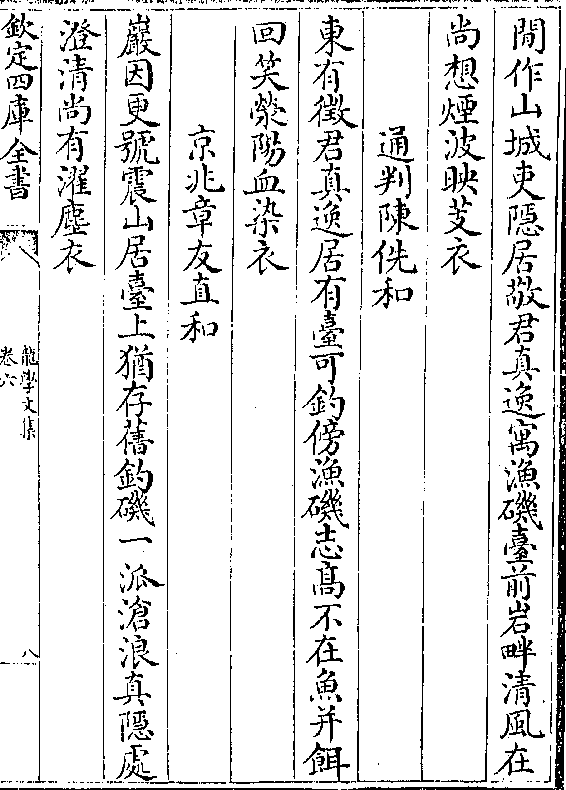 閒作山城吏隱居敬君真逸寓漁磯臺前岩畔清風在
尚想煙波映芰衣
通判陳侁和
東有徵君真逸居有臺可釣傍漁磯志髙不在魚并餌
回笑滎陽血染衣
京兆章友直和
巖因更號震山居臺上猶存舊釣磯一派滄浪真隠處
澄清尚有濯塵衣
欽定四庫全書
龍學文集
卷六
八